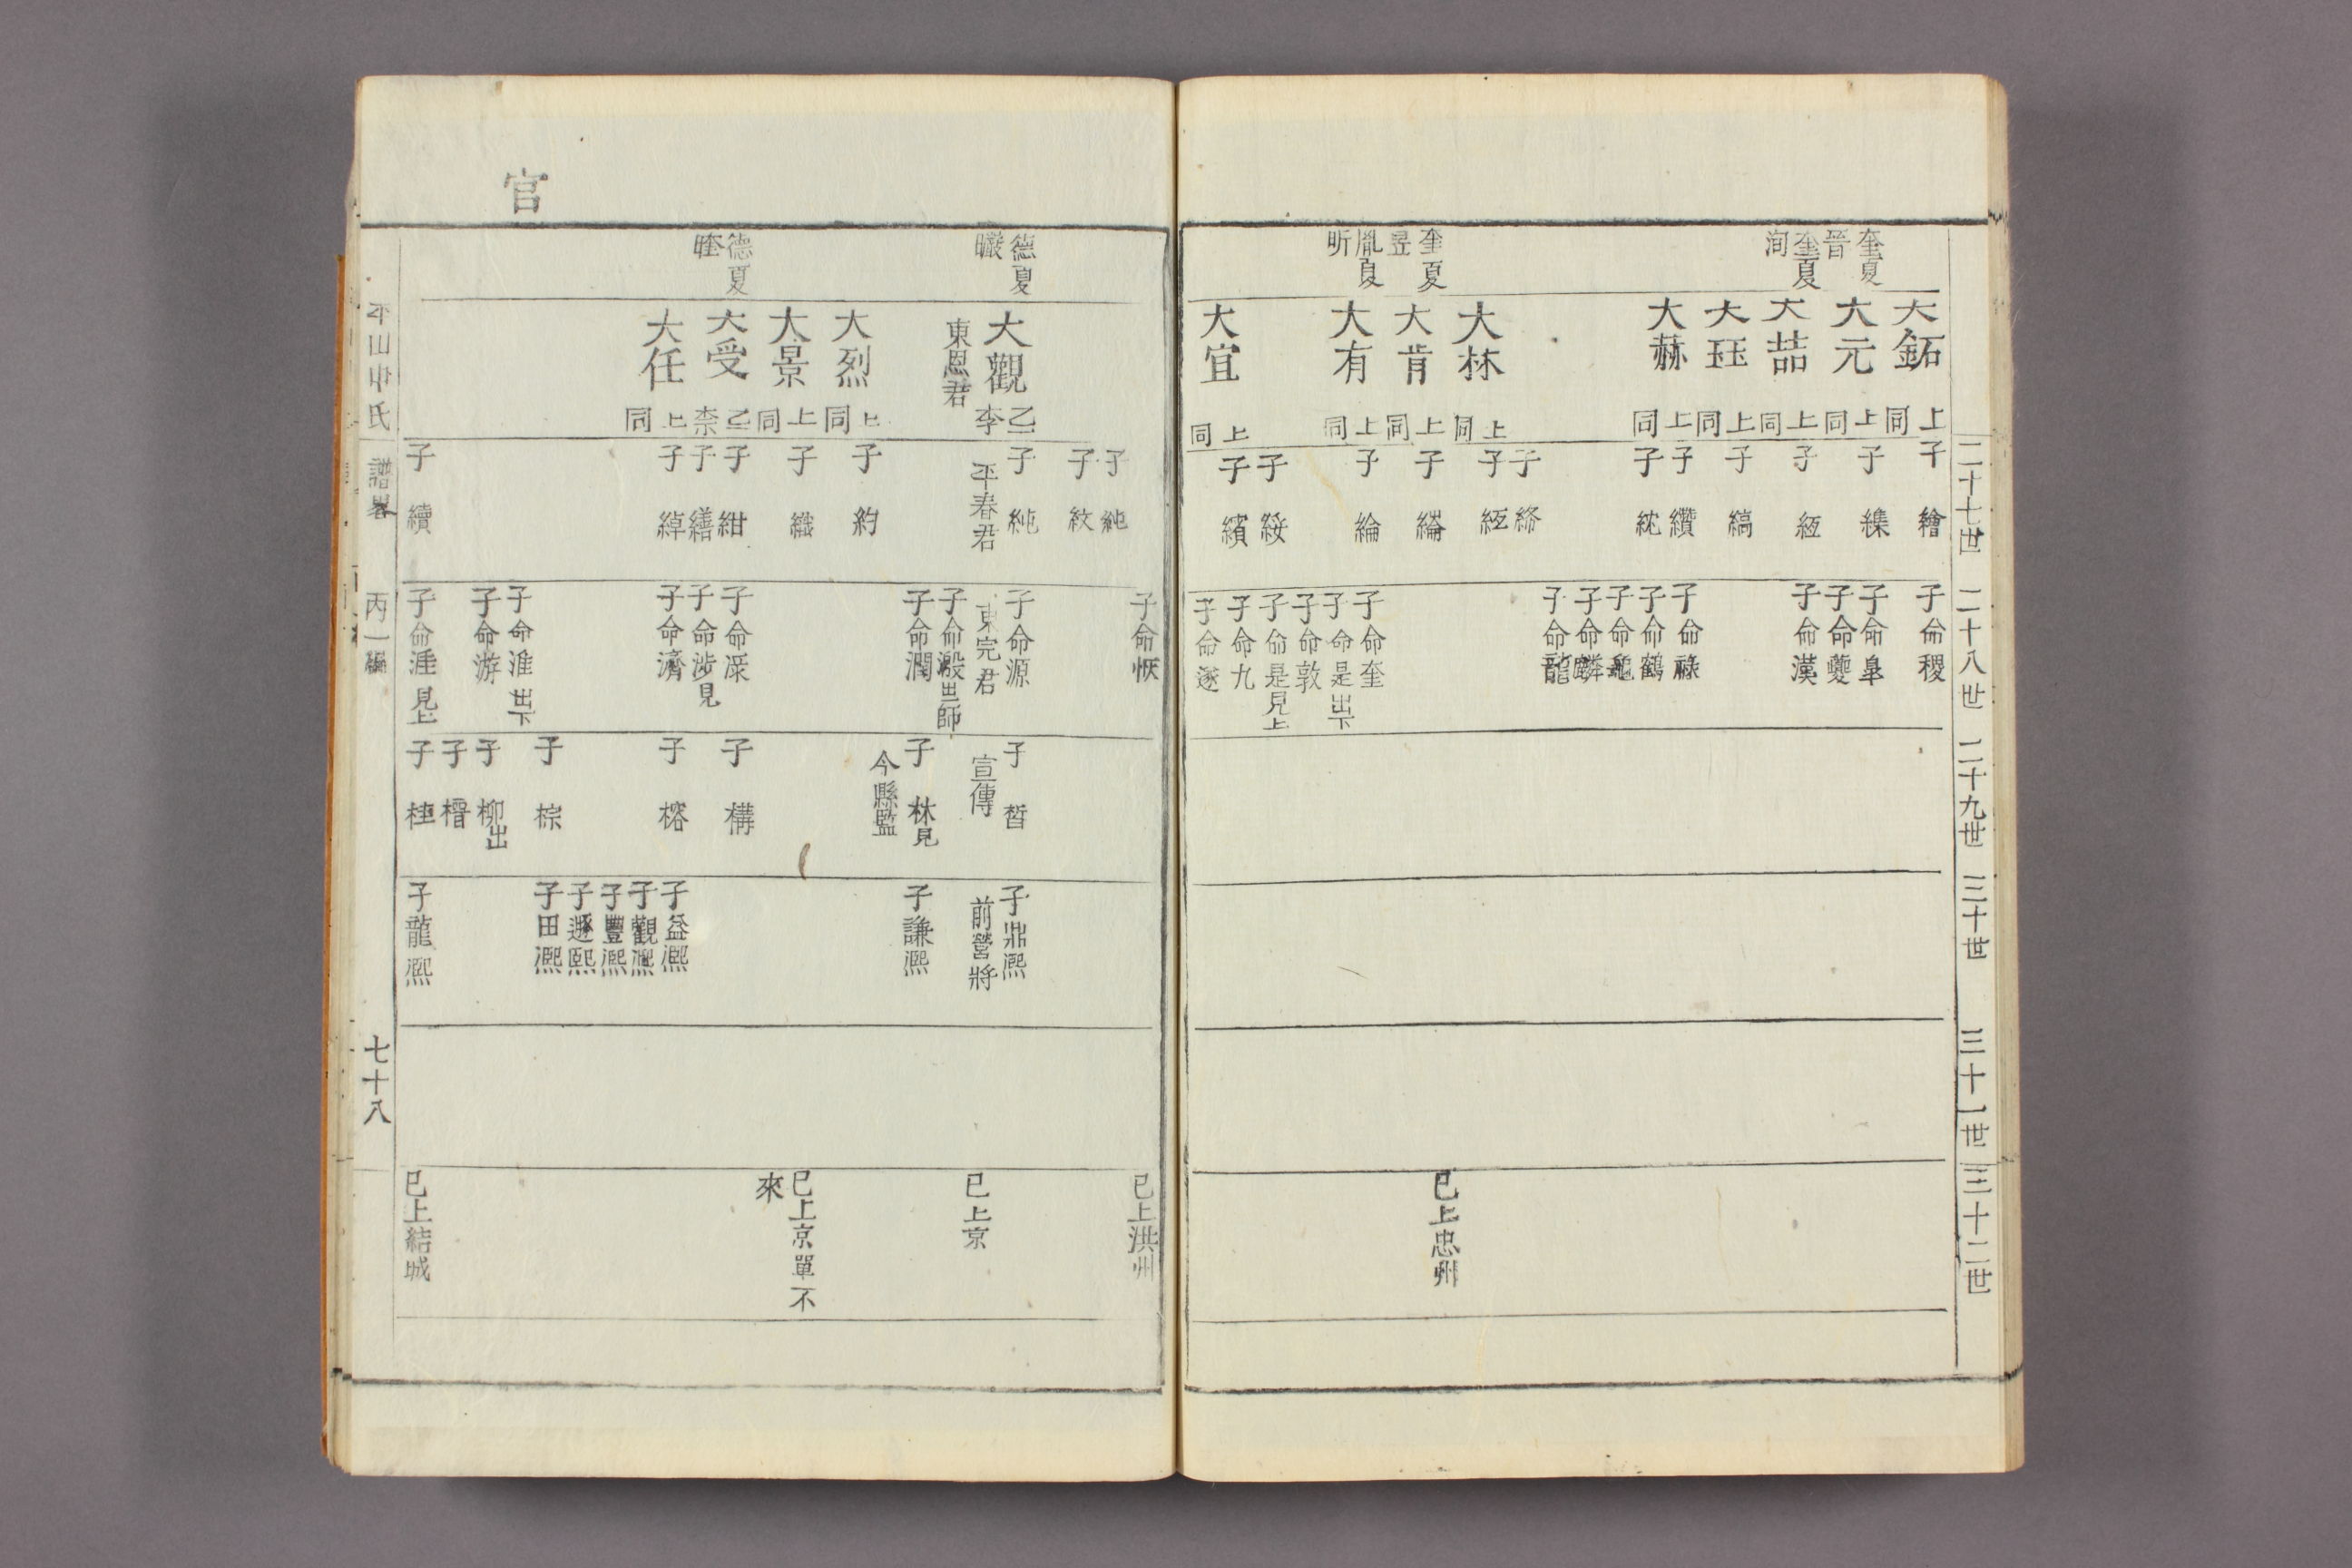 二十七世
二十八世
二十九世
三十世
三十一世
三十二世
奎夏
晉
奎夏
洵
奎夏
昱
胤夏
昕
大鉐
上同
大元
上同
大喆
上同
大珏
上同
大赫
上同
大林
上同
大肯
上同
大有
上同
大宜
上同
子繪
子緤
子
子縞
子纘
子
子
子
子
子綸
子綏
子繽
子命稷
子命皐
子命夔
子命漢
子命祿
子命鶴
子命龜
子命麟
子命龍
子命奎
子命是出下
子命敦
子命是見上
子命九
子命邃
已上忠州
官
德夏
曮
德夏
大觀
乙李
東恩君
大烈
上同
大景
上同
大受
乙柰
大任
上同
子純
子紋
子純
平春君
子約
子織
子紺
子繕
子綽
子續
子命恢
子命源
東完君
子命溵出三師
子命潤
子命深
子命涉見
子命濟
子命淮出下
子命游
子命涯見上
子晳
宣傳
子林見
今縣監
子構
子榕
子棕
子柳出
子榗
子桂
子鼎熙
前營將
子謙熙
子益熙
子觀熙
子豐熙
子遯熙
子田熙
子龍熙
已上洪州
已上京
已上京單不
來
已上結城
平山申氏
譜畧
丙一編
七十八